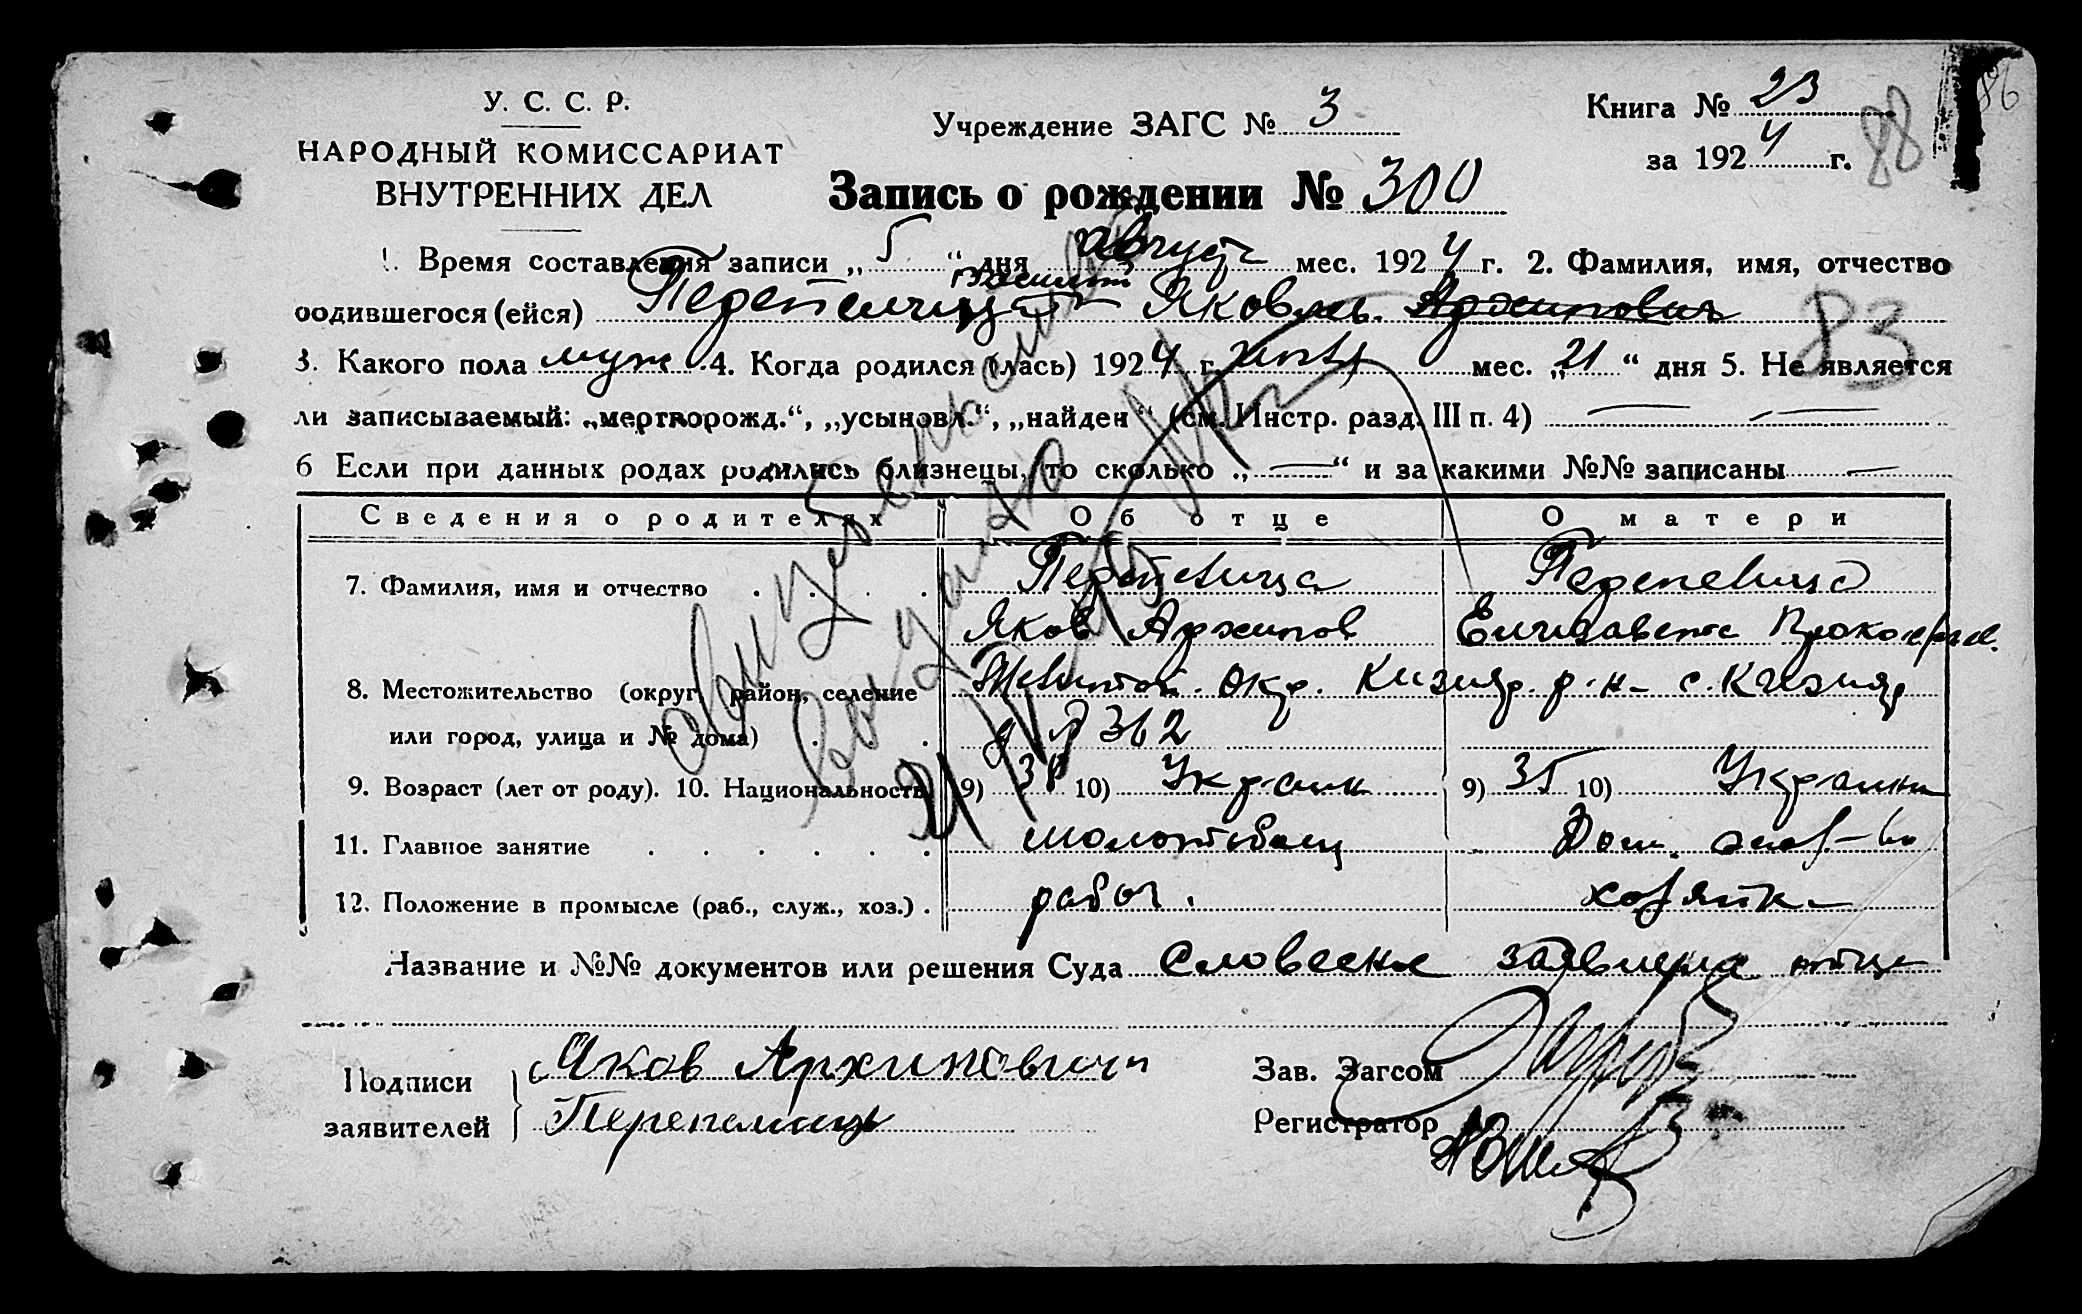 У. С. С. Р.
НАРОДНЫЙ КОМИССАРИАТ
ВНУТРЕННИХ ДЕЛ
Учреждение ЗАГС № 3
Книга № 23
за 1924 г.
88
86
Запись о рождении № 300
1. Время составления записи „5“ дня август мес. 1924 г. 2. Фамилия, имя, отчество
Василий
родившегося (ейся) Перепелица Яковл. Архипович
83
3. Какого пола муж 4. Когда родился (лась) 1924 г. мес. „21“ дня 5. Не является
ли записываемый: „мертворожд.“, „усыновл.“, „найден“ (см. Инстр. разд. III п. 4) —
6 Если при данных родах родились близнецы, то сколько „—“ и за какими №№ записаны —
Сведения о родителях Об отце О матери
7. Фамилия, имя и отчество Перепелица Перепелица
Яков Архипов Елизавета Прокофьев.
8. Местожительство (округ, район, селение Мелитоп. Окр. Кизияр. р-н с. Кизияр
или город, улица и № дома) 362
9. Возраст (лет от роду). 10. Национальность 9) 38 10) Украин 9) 35 10) Украинк
11. Главное занятие Дом. хоз-во
12. Положение в промысле (раб., служ., хоз.) рабоч. хозяйка
Название и №№ документов или решения Суда Словесное заявление отца
Подписи заявителей
Яков Архипович
Перепелица
Зав. Загсом
Регистратор